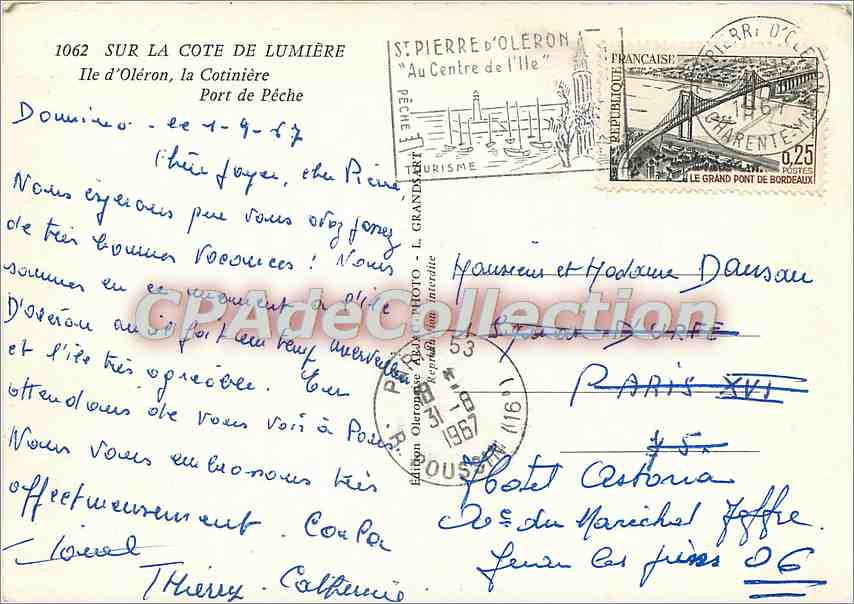 1062 SUR LA COTE DE LUMIÈRE
Ile d'Oléron, la Cotinière
Port de Pêche
Domino - le 1-9-67
Chère , cher Pierre,
Nous espérons que vous avez passez
de très bonnes vacances ! Nous
sommes en ce moment à l'île
D'oléron où il fait un temp merveilleux
et l'île très agréable. En
attendans de vous voir à Paris
Nous vous embrassons très
affectueusement.
Thierry - Catherine
Edition Oleronnaise ARJAC-PHOTO - L. GRANDSART
Reproduction interdite
ST PIERRE D'OLERON
"Au Centre de l'Ile"
PÊCHE
TOURISME
ST PIERRE D'OLERON
1967
CHARENTE-MME
REPUBLIQUE FRANÇAISE
0,25
POSTES
LE GRAND PONT DE BORDEAUX
Monsieur et Madame Dansau
D'URFE
PARIS XVI
75
Hotel Astoria
Ave du Maréchal Joffre
Juan les pins 06
PARIS 53
31-8
1967
R. POUSSIN (16)
CPAdeCollection